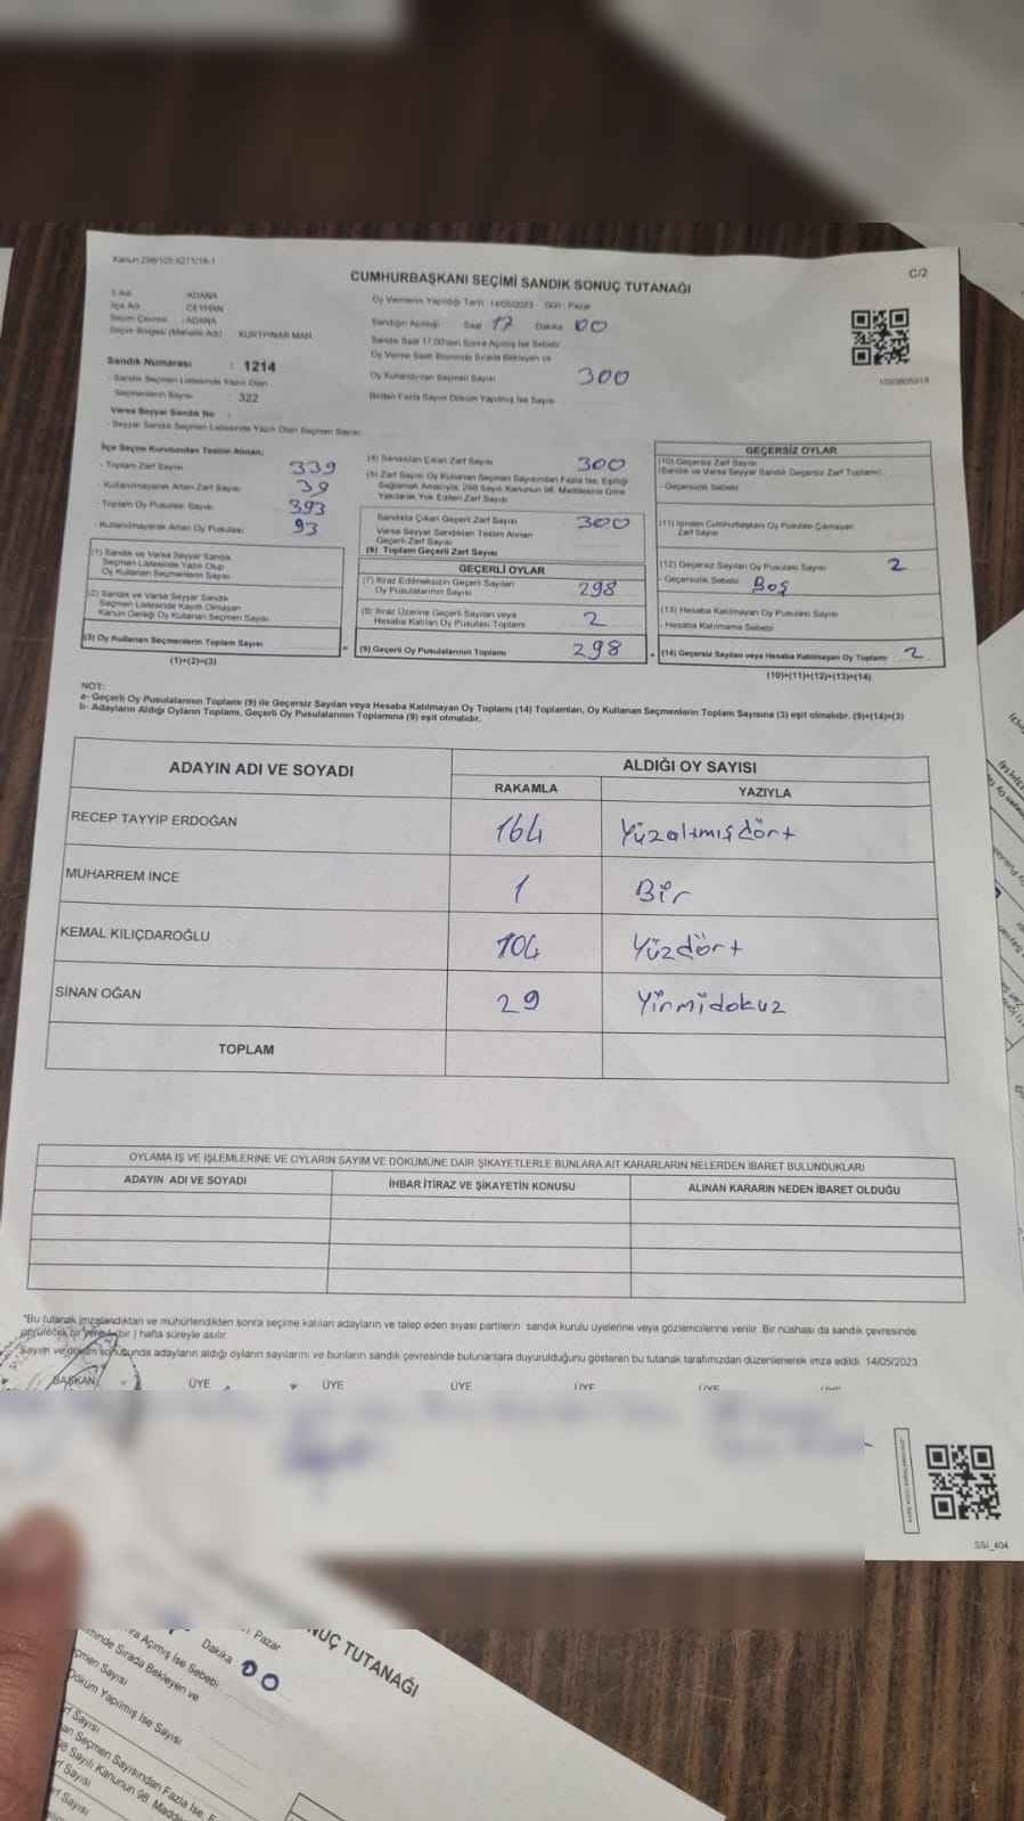 Kanun 298/105 6271/18-1
CUMHURBAŞKANI SEÇİMİ SANDIK SONUÇ TUTANAĞI
C/2
İl Adı : ADANA
İlçe Adı : CEYHAN
Seçim Çevresi : ADANA
Seçim Bölgesi (Mahalle Adı) : KURTPINAR MAH
Sandık Numarası : 1214
- Sandık Seçmen Listesinde Yazılı Olan
Seçmenlerin Sayısı : 322
Varsa Seyyar Sandık No :
- Seyyar Sandık Seçmen Listesinde Yazılı Olan Seçmen Sayısı:
Oy Vermenin Yapıldığı Tarih : 14/05/2023 - Gün : Pazar
Sandığın Açıldığı Saat 17 Dakika 00
Sandık Saat 17.00'den Sonra Açılmış İse Sebebi
Oy Verme Saati Bitiminde Sırada Bekleyen ve
Oy Kullandırılan Seçmen Sayısı 300
Birden Fazla Sayım Döküm Yapılmış İse Sayısı
İlçe Seçim Kurulundan Teslim Alınan;
- Toplam Zarf Sayısı 339
- Kullanılmayarak Artan Zarf Sayısı 39
- Toplam Oy Pusulası Sayısı 393
- Kullanılmayarak Artan Oy Pusulası 93
(1) Sandık ve Varsa Seyyar Sandık
Seçmen Listesinde Yazılı Olup
Oy Kullanan Seçmenlerin Sayısı
(2) Sandık ve Varsa Seyyar Sandık
Seçmen Listesinde Kayıtlı Olmayan
Kanun Gereği Oy Kullanan Seçmen Sayısı
(3) Oy Kullanan Seçmenlerin Toplam Sayısı
(1)+(2)=(3)
(4) Sandıktan Çıkan Zarf Sayısı 300
(5) Zarf Sayısı Oy Kullanan Seçmen Sayısından Fazla İse, Eşitliği
Sağlamak Amacıyla, 298 Sayılı Kanunun 98. Maddesine Göre
Yakılarak Yok Edilen Zarf Sayısı
Sandıkta Çıkan Geçerli Zarf Sayısı 300
Varsa Seyyar Sandıktan Teslim Alınan
Geçerli Zarf Sayısı
(6) Toplam Geçerli Zarf Sayısı
GEÇERLİ OYLAR
(7) İtiraz Edilmeksizin Geçerli Sayılan
Oy Pusulalarının Sayısı 298
(8) İtiraz Üzerine Geçerli Sayılan veya
Hesaba Katılan Oy Pusulası Toplamı 2
(9) Geçerli Oy Pusulalarının Toplamı 298
GEÇERSİZ OYLAR
(10) Geçersiz Zarf Sayısı
(Sandık ve Varsa Seyyar Sandık Geçersiz Zarf Toplamı)
- Geçersizlik Sebebi
(11) İçinden Cumhurbaşkanı Oy Pusulası Çıkmayan
Zarf Sayısı
(12) Geçersiz Sayılan Oy Pusulası Sayısı 2
- Geçersizlik Sebebi Boş
(13) Hesaba Katılmayan Oy Pusulası Sayısı
- Hesaba Katılmama Sebebi
(14) Geçersiz Sayılan veya Hesaba Katılmayan Oy Toplamı 2
(10)+(11)+(12)+(13)=(14)
NOT:
a- Geçerli Oy Pusulalarının Toplamı (9) ile Geçersiz Sayılan veya Hesaba Katılmayan Oy Toplamı (14) Toplamları, Oy Kullanan Seçmenlerin Toplam Sayısına (3) eşit olmalıdır. (9)+(14)=(3)
b- Adayların Aldığı Oyların Toplamı, Geçerli Oy Pusulalarının Toplamına (9) eşit olmalıdır.
ADAYIN ADI VE SOYADI
ALDIĞI OY SAYISI
RAKAMLA
YAZIYLA
RECEP TAYYIP ERDOĞAN 164 Yüzaltmışdört
MUHARREM İNCE 1 Bir
KEMAL KILIÇDAROĞLU 104 Yüzdört
SİNAN OĞAN 29 Yirmidokuz
TOPLAM
OYLAMA İŞ VE İŞLEMLERİNE VE OYLARIN SAYIM VE DÖKÜMÜNE DAİR ŞİKAYETLERLE BUNLARA AİT KARARLARIN NELERDEN İBARET BULUNDUKLARI
ADAYIN ADI VE SOYADI
İHBAR İTİRAZ VE ŞİKAYETİN KONUSU
ALINAN KARARIN NEDEN İBARET OLDUĞU
"Bu tutanak imzalandıktan ve mühürlendikten sonra seçime katılan adayların ve talep eden siyasi partilerin sandık kurulu üyelerine veya gözlemcilerine verilir. Bir nüshası da sandık çevresinde
görülecek bir yere 1 hafta süreyle asılır.
Sayım ve döküm sonucunda adayların aldığı oyların sayılarını ve bunların sandık çevresinde bulunanlara duyurulduğunu gösteren bu tutanak tarafımızdan düzenlenerek imza edildi. 14/05/2023
BAŞKAN ÜYE ÜYE ÜYE ÜYE ÜYE
SSI_404
NUÇ TUTANAĞI
Pazar
Dakika 00
ra Açılmış İse Sebebi
minde Sırada Bekleyen ve
çmen Sayısı
Döküm Yapılmış İse Sayısı
rf Sayısı
an Seçmen Sayısından Fazla İse, E
98 Sayılı Kanunun 98. Madde
rf Sayısı
rf Sayısı